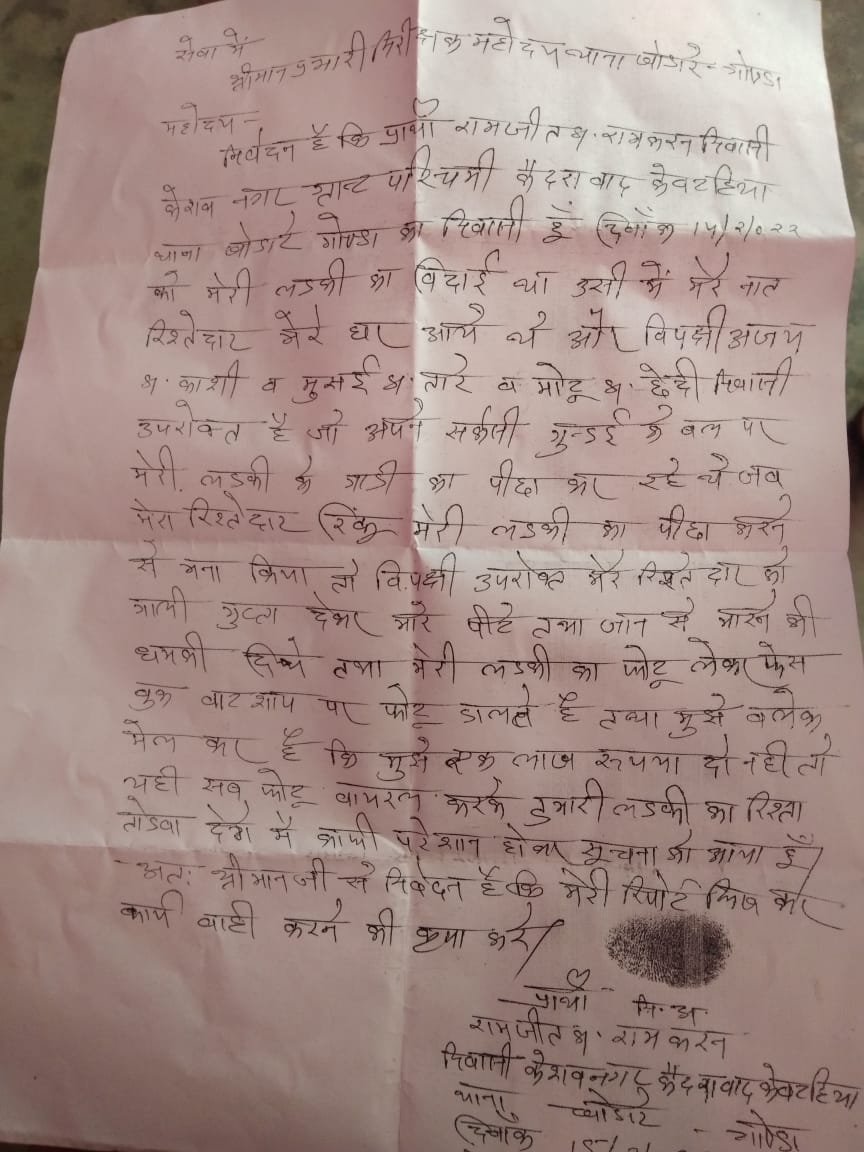 सेवा में
श्रीमान प्रभारी निरीक्षक महोदय थाना खोडारे - गोण्डा
महोदय -
निवेदन है कि प्रार्थी रामजीत s/o रामकरन निवासी
केशव नगर ग्रान्ट पश्चिमी कैदराबाद केवटहिया
थाना खोडारे गोण्डा का निवासी हूँ दिनाँक
को मेरी लडकी का विदाई था उसी में मेरे नात
रिश्तेदार मेरे घर आये थे और विपक्षी अजय
s/o काशी व मुसई s/o तारे व मोटू s/o छेदी निवासी
उपरोक्त है जो अपने सर्कसी गुन्डई के बल पर
मेरी लडकी के गाडी का पीछा कर रहे थे जब
मेरा रिश्तेदार रिंकू मेरी लडकी का पीछा करने
से मना किया तो विपक्षी उपरोक्त मेरे रिश्तेदार को
गाली गुप्ता देकर मारे पीटे तथा जान से मारने की
धमकी दिये तथा मेरी लडकी का फोटू लेकर फेस
बुक वाटशाप पर फोटू डालते है तथा मुझे बलेक
मेल कर है कि मुझे एक लाख रूपया दो नही तो
यही सब फोटू वायरल करके तुमारी लडकी का रिश्ता
तोडवा देगें मै काफी परेशान होकर सूचना को आया हूँ/
अतः श्रीमान जी से निवेदन है कि मेरी रिपोर्ट लिख कर
कार्य वाही करने की कृपा करे/
प्रार्थी नि.अ.
रामजीत s/o रामकरन
निवासी केशवनगर कैदराबाद केवटहिया
थाना खोडारे - गोण्डा
दिनाँक